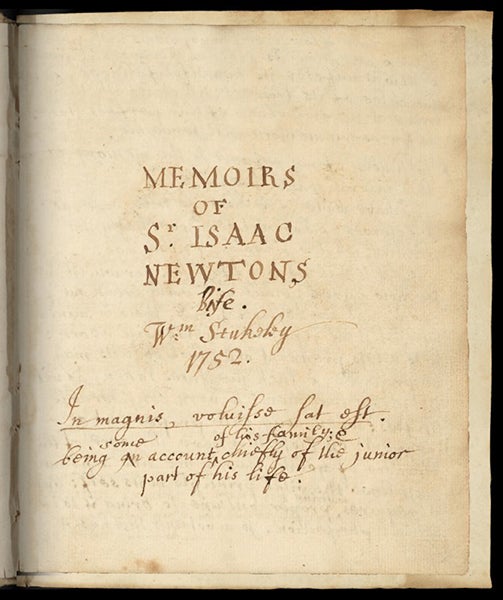 MEMOIRS
OF
Sr. ISAAC
NEWTONS
life.
Wm. Stukeley
1752.
In magnis, voluisse sat est.
being some account, of his family; & chiefly of the junior
part of his life.